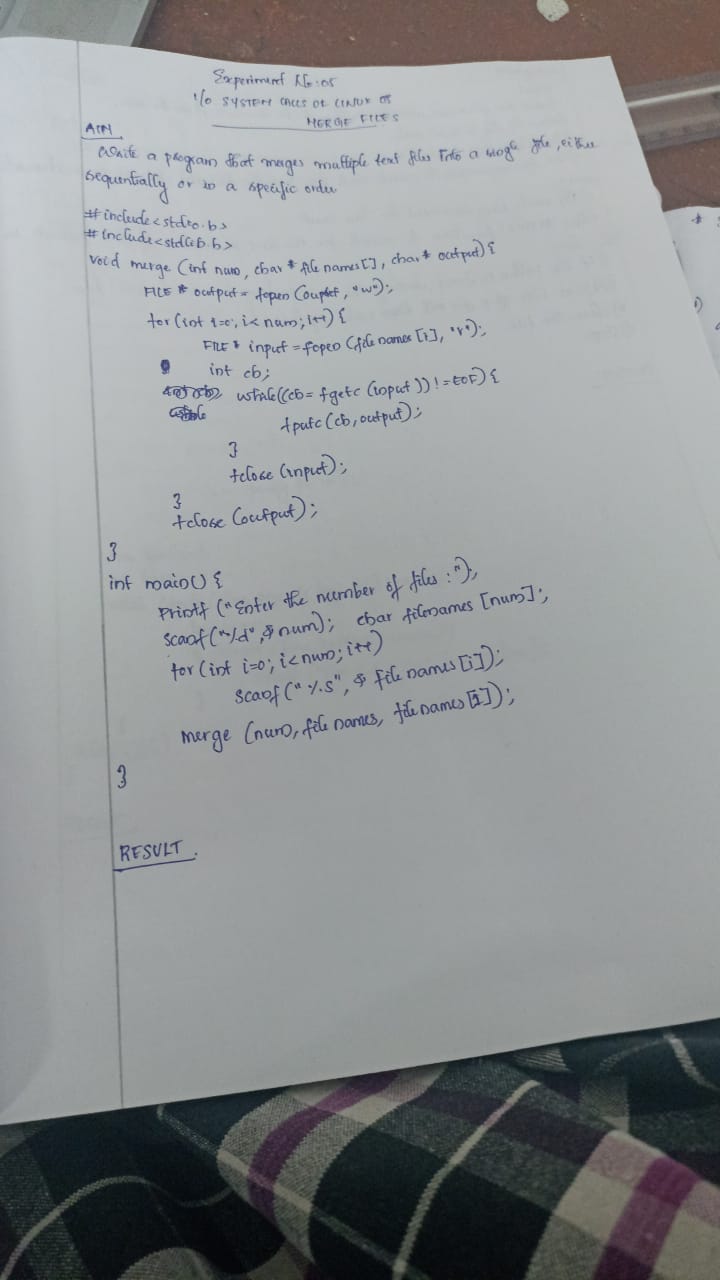 Experiment No:05
I/O SYSTEM CALLS OF LINUX OS
MERGE FILES
AIM
Write a program that merges multiple text files into a single file, either
sequentially or in a specific order
#include<stdio.h>
#include<stdlib.h>
void merge (int num, char * file names[], char* output) {
FILE * output = fopen (output, "w");
for (int i=0; i<num; i++) {
FILE * input = fopen (file names [i], "r");
int ch;
while((ch= fgetc (input)) != EOF) {
fputc (ch, output);
}
fclose (input);
}
fclose (output);
}
int main() {
Printf ("Enter the number of files :");
scanf("%d",&num); char filenames [num];
for (int i=0; i<num; i++)
scanf("%s", & file names [i]);
merge (num, file names, file names [1]);
}
RESULT.